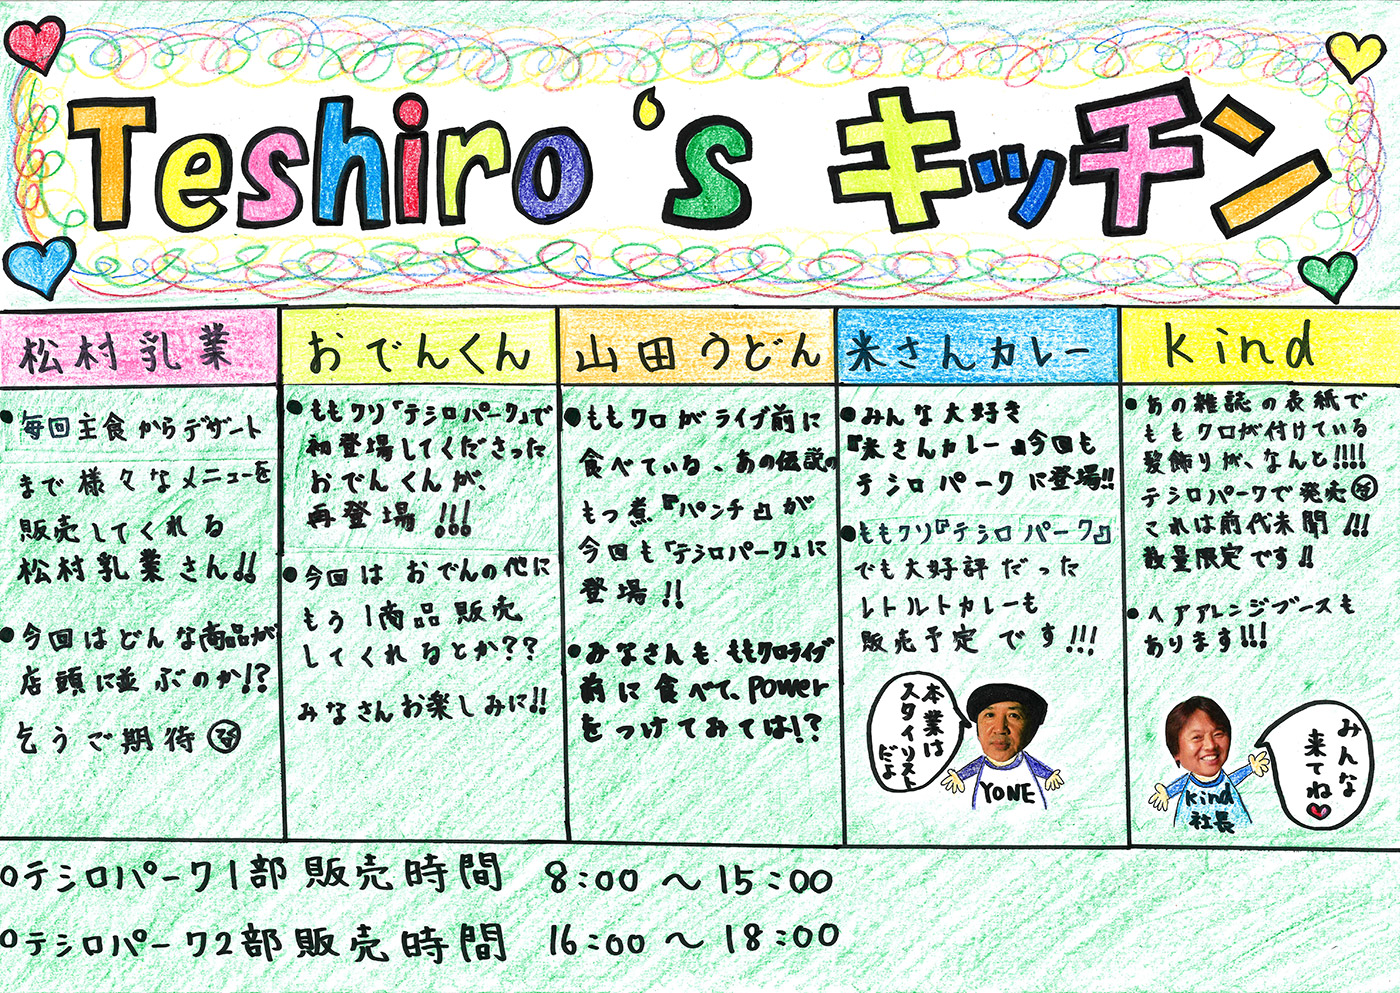 Teshiro's キッチン
松村乳業
●毎回主食からデザート
まで様々なメニューを
販売してくれる
松村乳業さん!!
●今回はどんな商品が
店頭に並ぶのか!?
乞うご期待
おでんくん
●ももクリ「テシロパーク」で
初登場してくださった
おでんくんが、
再登場!!!
●今回はおでんの他に
もう1商品販売
してくれるとか??
みなさんお楽しみに!!
山田うどん
●ももクロがライブ前に
食べている、あの伝説の
もつ煮『パンチ』が
今回も「テシロパーク」に
登場!!
●みなさんも ももクロライブ
前に食べて、Power
をつけてみては!?
米さんカレー
●みんな大好き
『米さんカレー』今回も
テシロパークに登場!!
●ももクリ『テシロパーク』
でも大好評だった
レトルトカレーも
販売予定です!!!
本業は
スタイリスト
だよ
YONE
kind
●あの雑誌の表紙で
ももクロが付けている
髪飾りが、なんと!!!!
テシロパークで発売
これは前代未聞!!!
数量限定です!!
●ヘアアレンジブースも
あります!!!
みんな
来てね
kind
社長
○テシロパーク1部販売時間 8:00〜15:00
○テシロパーク2部販売時間 16:00〜18:00